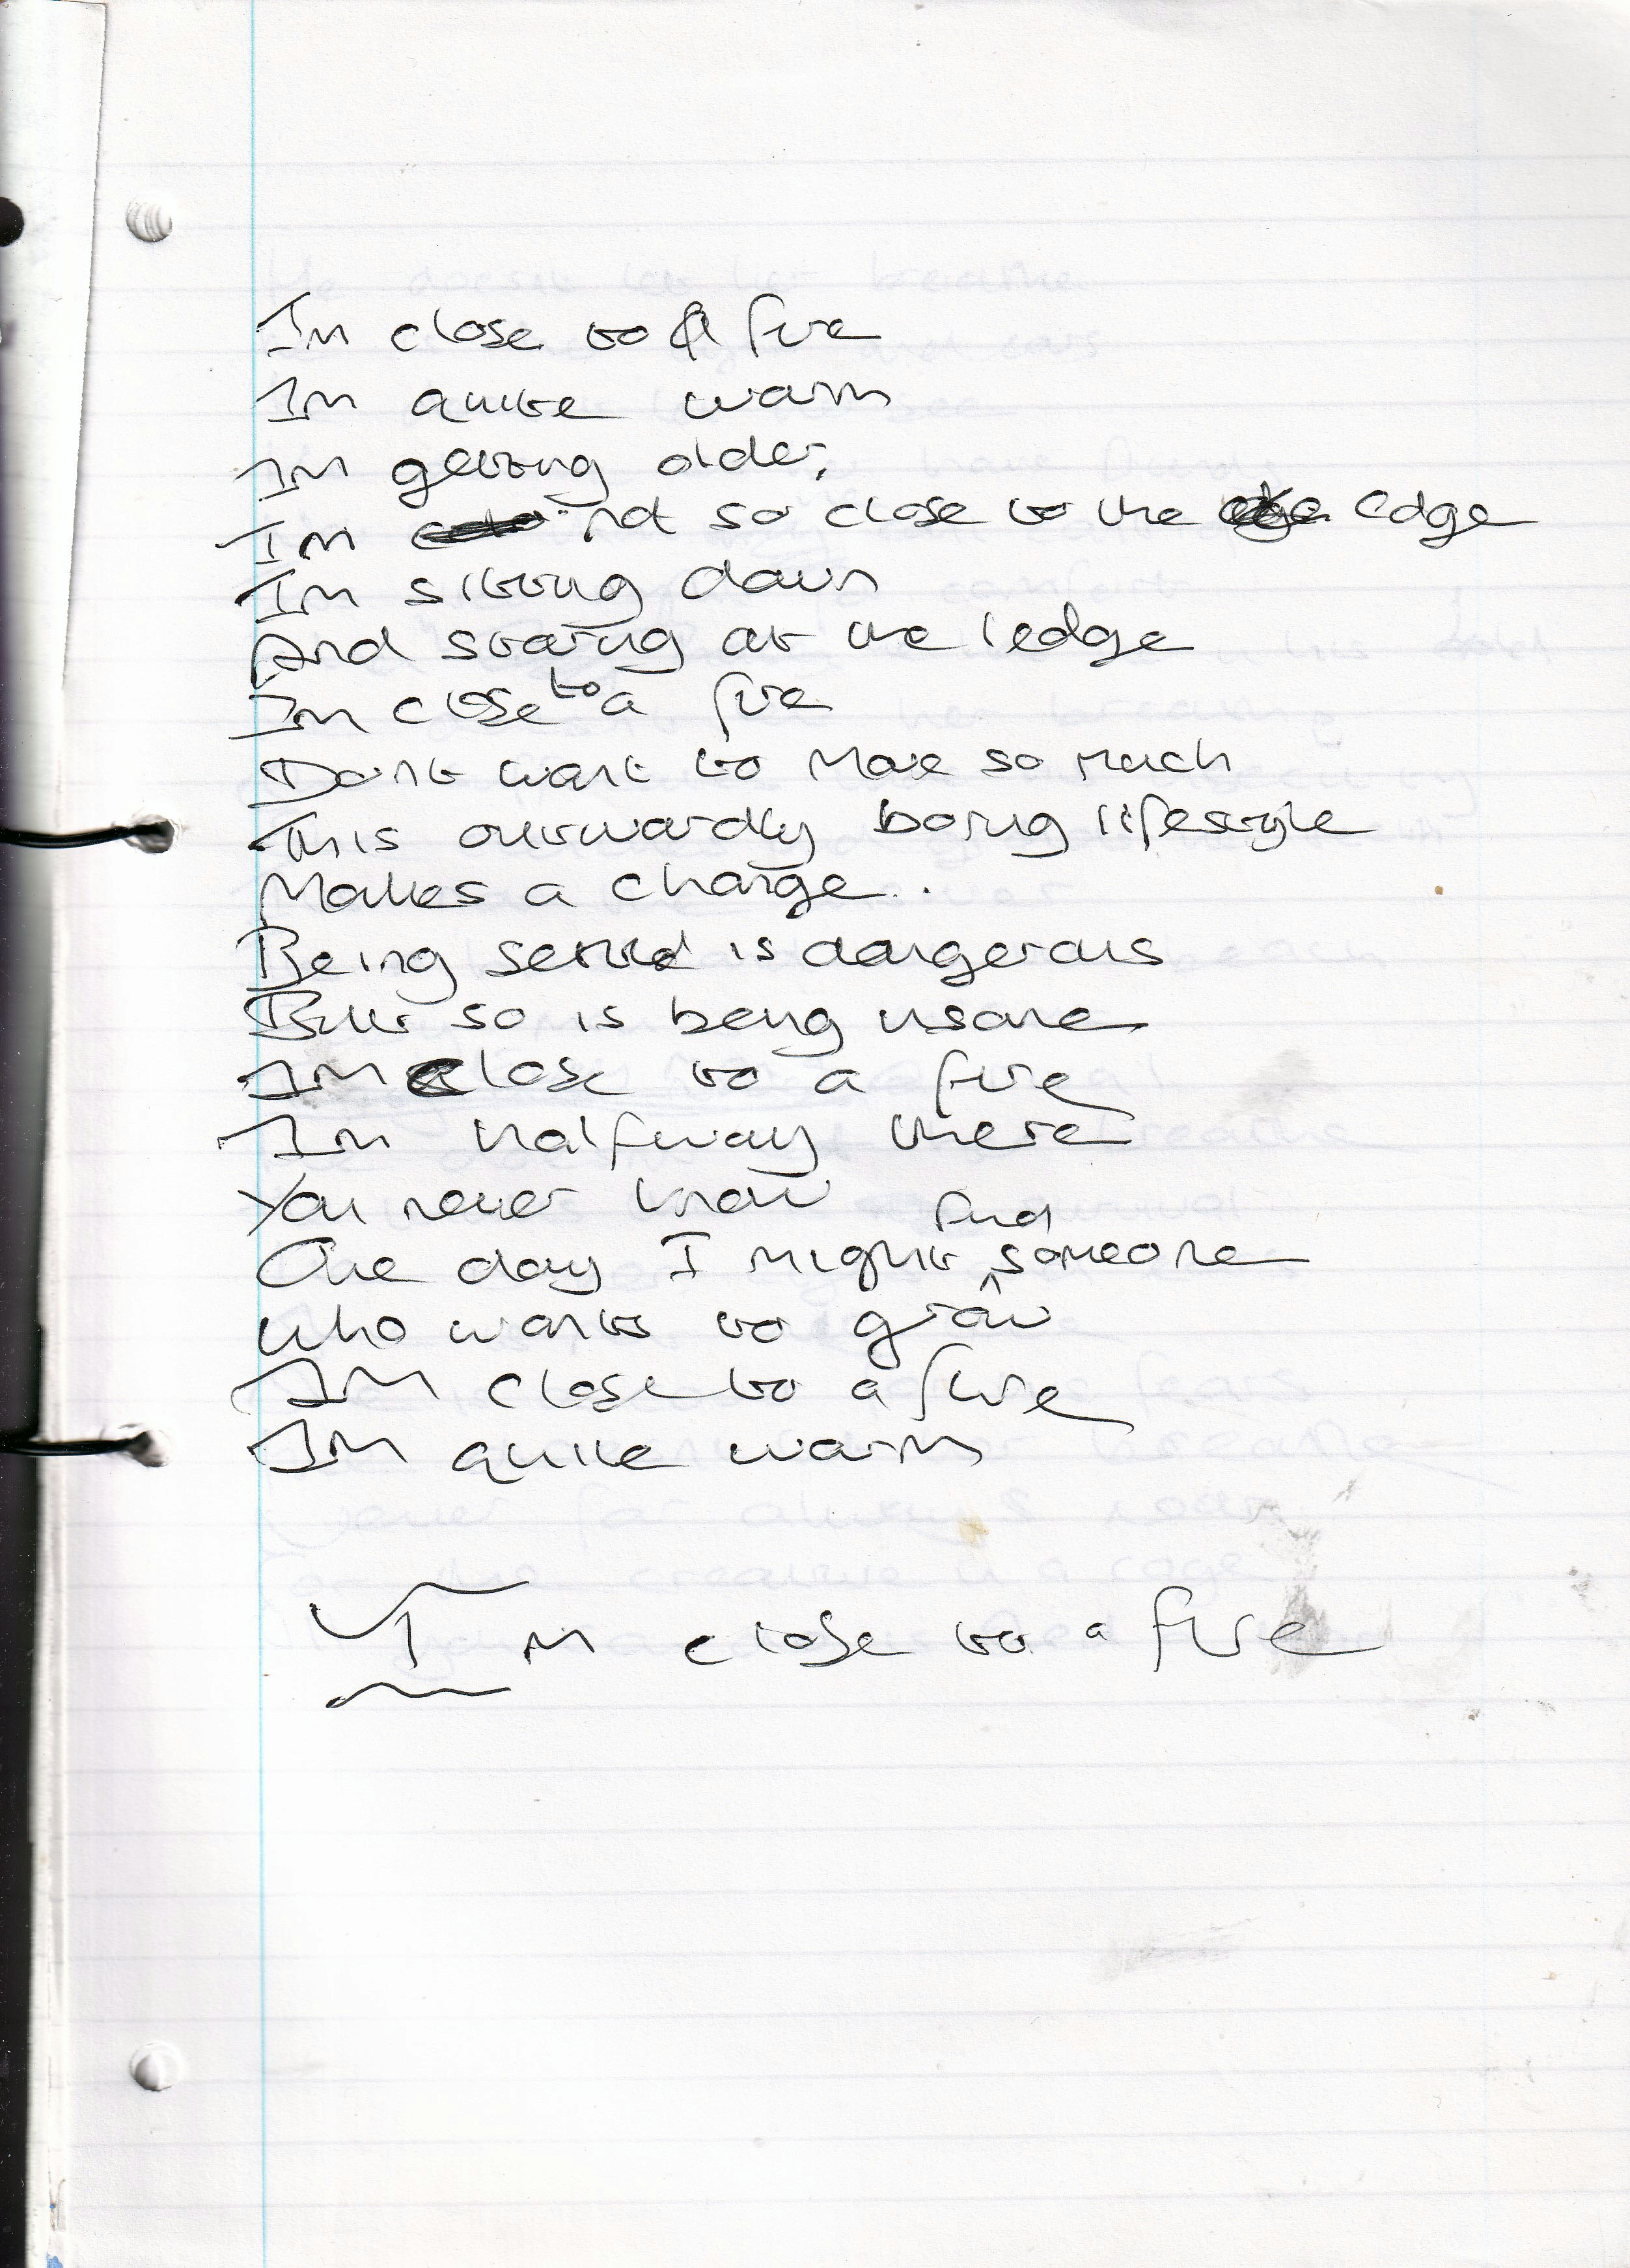 Im close to A fire
Im quite warm
Im getting older,
Im not so close to the edge
Im sitting down
And staring at the ledge
Im close to a fire
Dont want to move so much
This outwardly boring lifestyle
Makes a change.
Being settled is dangerous
But so is being insane
Im close to a fire
Im halfway there
You never know
One day I might find someone
who wants to grow
Im close to a fire
Im quite warm
Im close to a fire